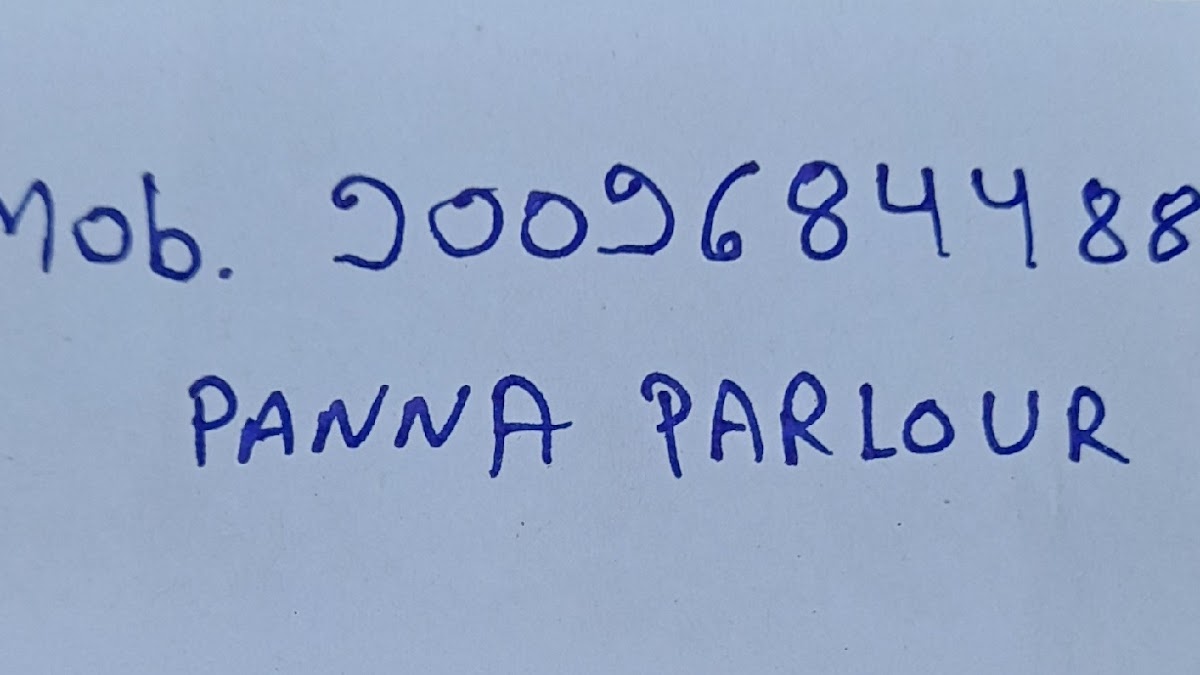 Mob. 9009684488
PANNA PARLOUR